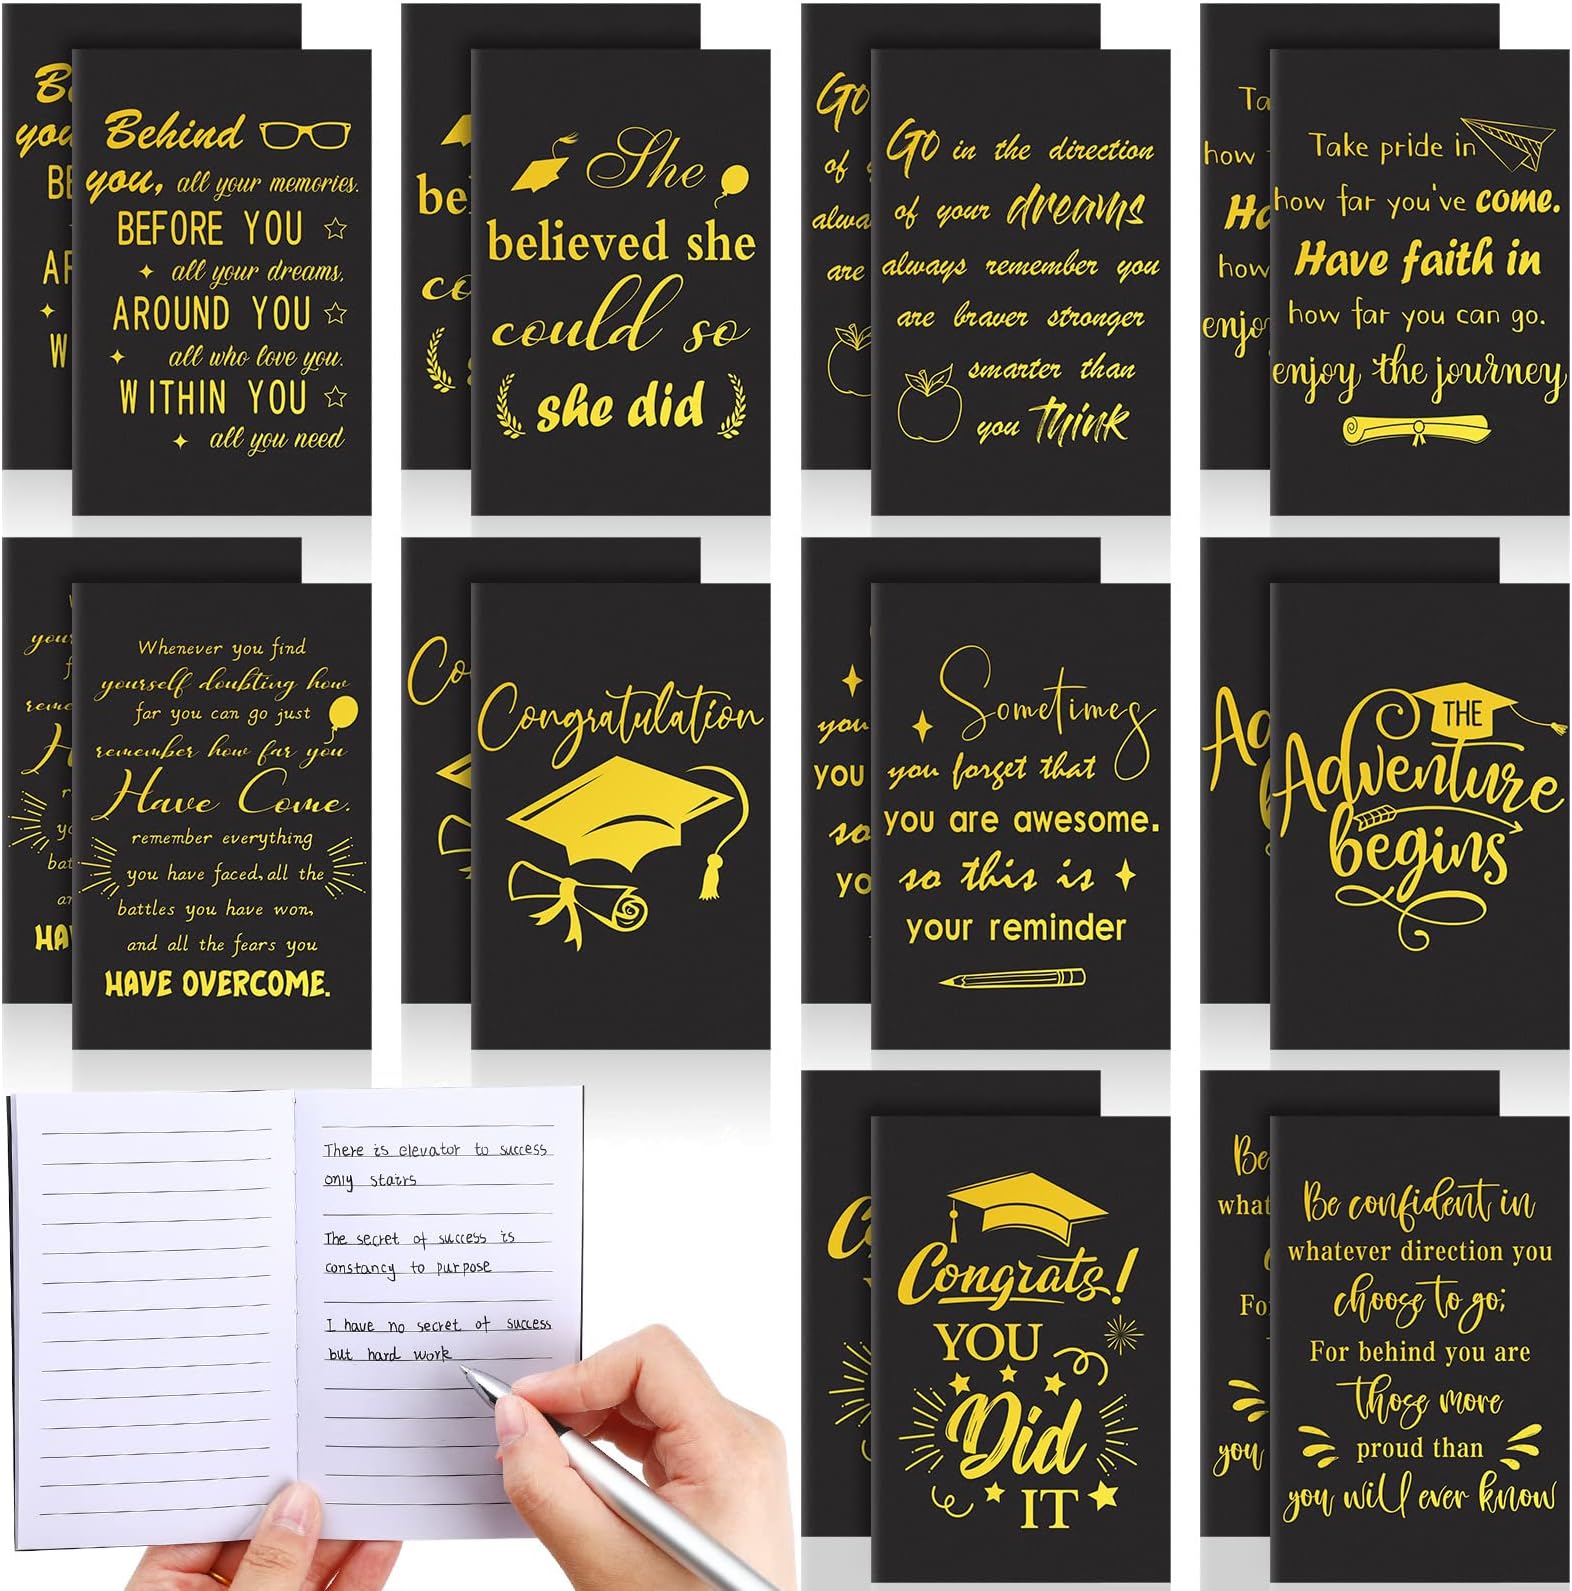 Behind
you, all your memories.
BEFORE YOU
all your dreams,
AROUND YOU
all who love you.
WITHIN YOU
all you need
She
believed she
could so
she did
Go in the direction
of your dreams
always remember you
are braver stronger
smarter than
you think
Take pride in
how far you've come.
Have faith in
how far you can go.
enjoy the journey
Whenever you find
yourself doubting how
far you can go just
remember how far you
Have Come.
remember everything
you have faced, all the
battles you have won,
and all the fears you
HAVE OVERCOME.
Congratulation
Sometimes
you forget that
you are awesome.
so this is
your reminder
THE
Adventure
begins
There is elevator to success
only stairs
The secret of success is
constancy to purpose
I have no secret of success
but hard work
Congrats!
YOU
Did
IT
Be confident in
whatever direction you
choose to go;
For behind you are
those more
proud than
you will ever know